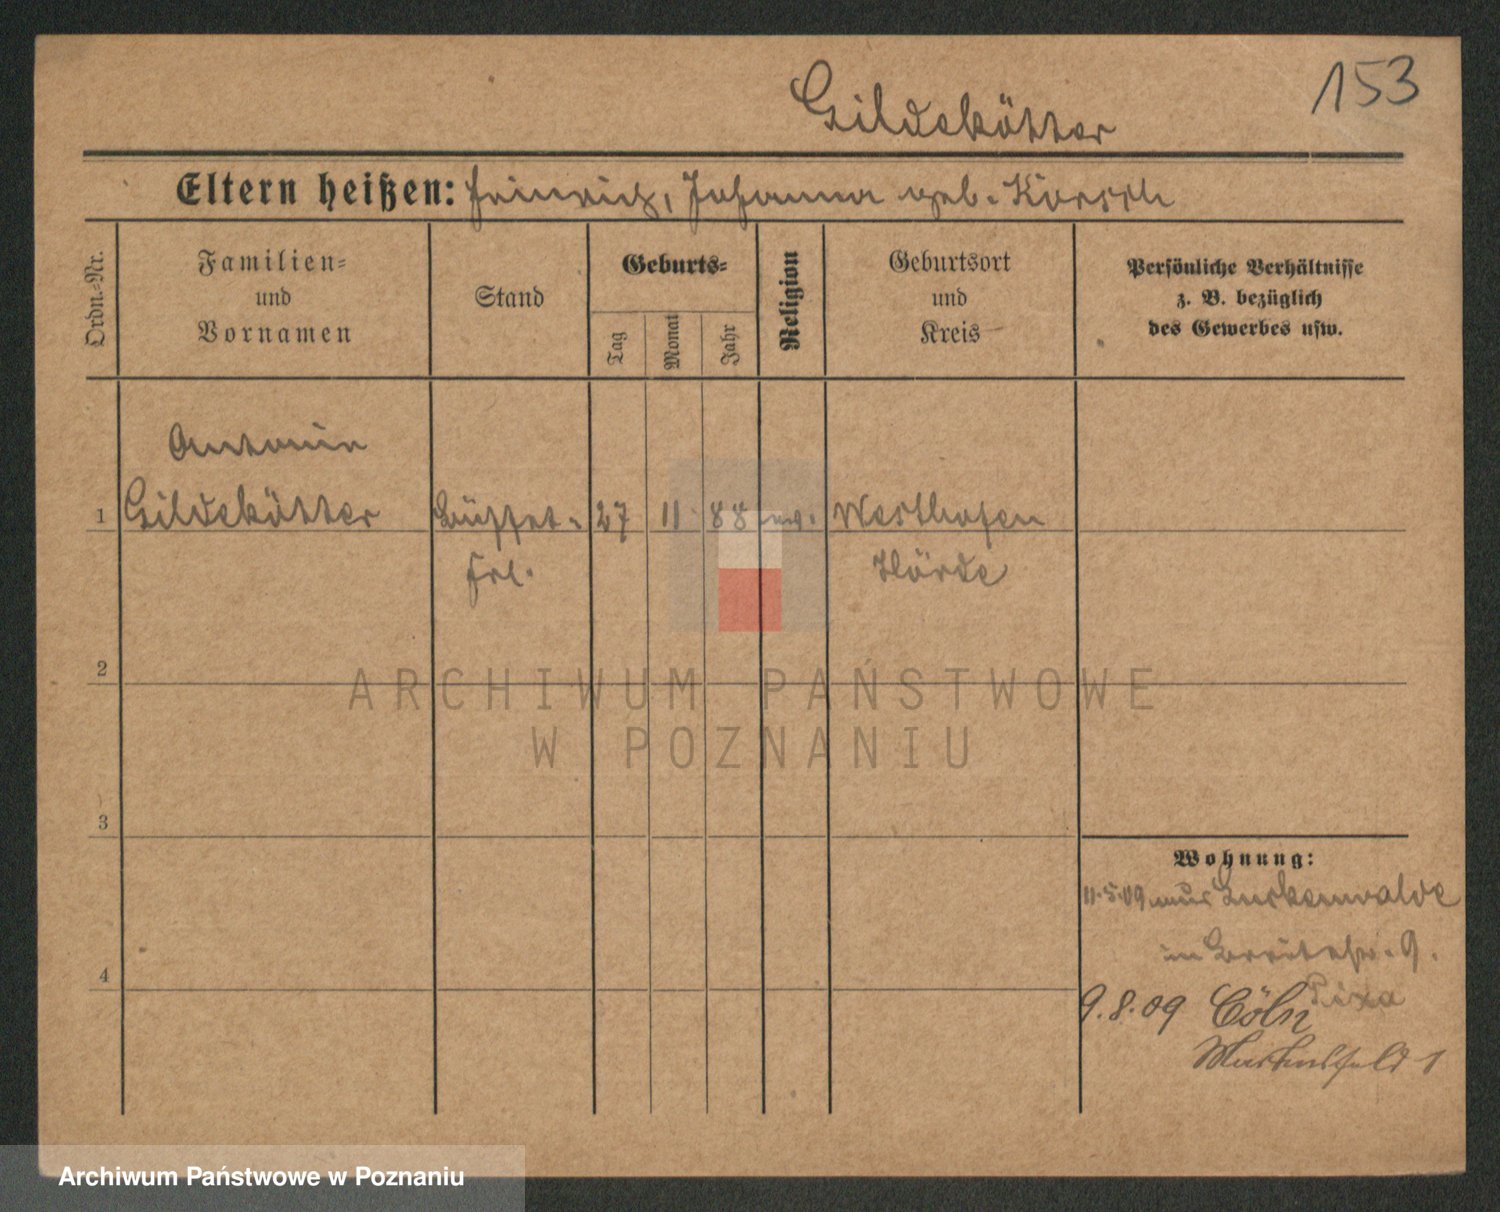 153
Gildekötter
Eltern heißen: Heinrich, Johanna geb. Korsch
Ordn.-Nr.
Familien-
und
Vornamen
Stand
Geburts-
Tag
Monat
Jahr
Religion
Geburtsort
und
Kreis
Persönliche Verhältnisse
z. B. bezüglich
des Gewerbes usw.
Antonie
1 Gildekötter Büffet- 27 11 88 ev. Westhofen
Frl. Hörde
2
3
4
Wohnung:
11.5.09 aus Luckenwalde
in Breitestr. 9.
9.8.09 Cöln
ARCHIWUM PAŃSTWOWE
W POZNANIU
Archiwum Państwowe w Poznaniu